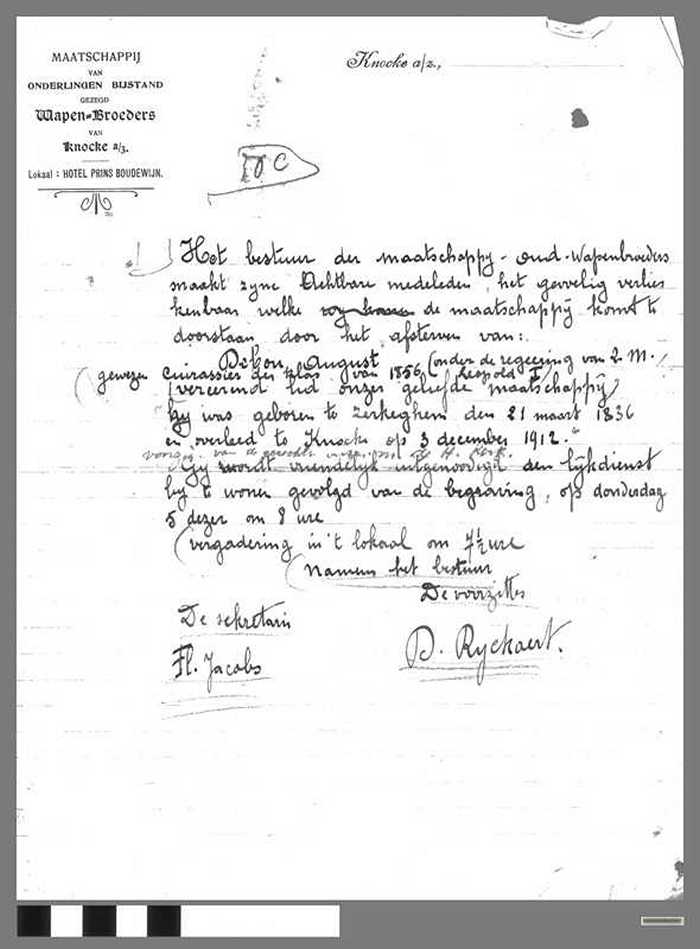 MAATSCHAPPIJ
VAN
ONDERLINGEN BIJSTAND
GEZEGD
Wapen-Broeders
VAN
Knocke a/z.
Lokaal : HOTEL PRINS BOUDEWIJN.
Knocke a/z.,
Het bestuur der maatschappy - oud-Wapenbroeders
maakt zyne Achtbare medeleden, het gevoelig verlies
kenbaar welke de maatschappij komt te
doorstaan door het afsterven van:
August (onder de regeering van Z. M.
gewezen cuirassier der klas van 1856, Leopold I)
(vereerend lid onzer geliefde maatschappij)
hy was geboren te Zerkeghem den 21 maart 1836
en overleed te Knocke op 3 december 1912.
van de H. Kerk.
Gy wordt vriendelyk uitgenoodigd den lykdienst
by te wonen gevolgd van de begraving, op donderdag
5 dezer om 8 ure
(vergadering in 't lokaal om 7½ ure
Namens het bestuur
De voorzitter
De sekretaris
D. Ryckaert.
Fl. Jacobs